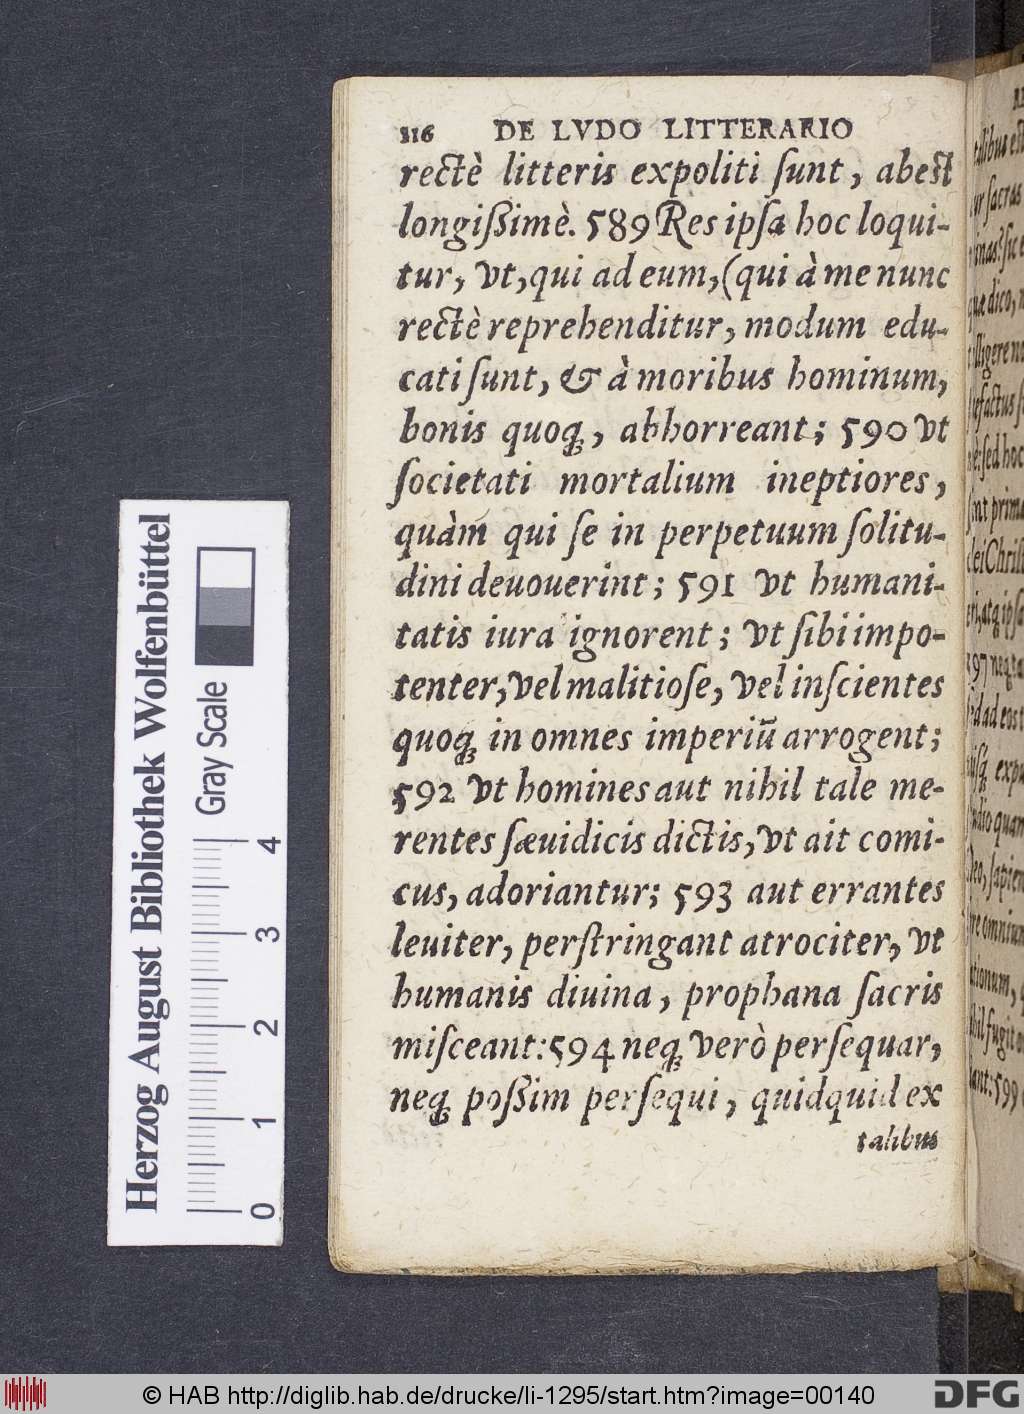 116 DE LVDO LITTERARIO
rectè litteris expoliti ſunt, abeſt
longißimè. 589 Res ipſa hoc loqui-
tur, vt, qui ad eum, (qui à me nunc
rectè reprehenditur, modum edu-
cati ſunt, & à moribus hominum,
bonis quoq́ꝫ, abhorreant; 590 vt
ſocietati mortalium ineptiores,
quàm qui ſe in perpetuum ſolitu-
dini deuouerint; 591 vt humani-
tatis iura ignorent; vt ſibi impo-
tenter, vel malitioſe, vel inſcientes
quoq́ꝫ in omnes imperiū arrogent;
592 vt homines aut nihil tale me-
rentes ſæuidicis dictis, vt ait comi-
cus, adoriantur; 593 aut errantes
leuiter, perſtringant atrociter, vt
humanis diuina, prophana ſacris
miſceant: 594 neq́ꝫ verò perſequar,
neq́ꝫ poßim perſequi, quidquid ex
talibus
Herzog August Bibliothek Wolfenbüttel
Gray Scale
0 1 2 3 4
© HAB http://diglib.hab.de/drucke/li-1295/start.htm?image=00140
DFG